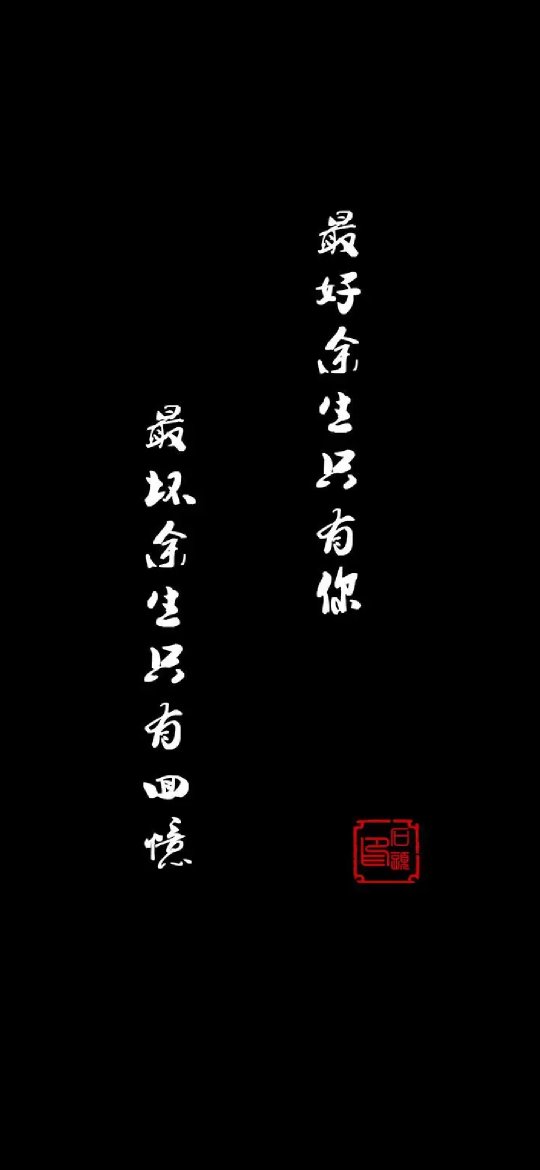 最好余生只有你
最坏余生只有回憶